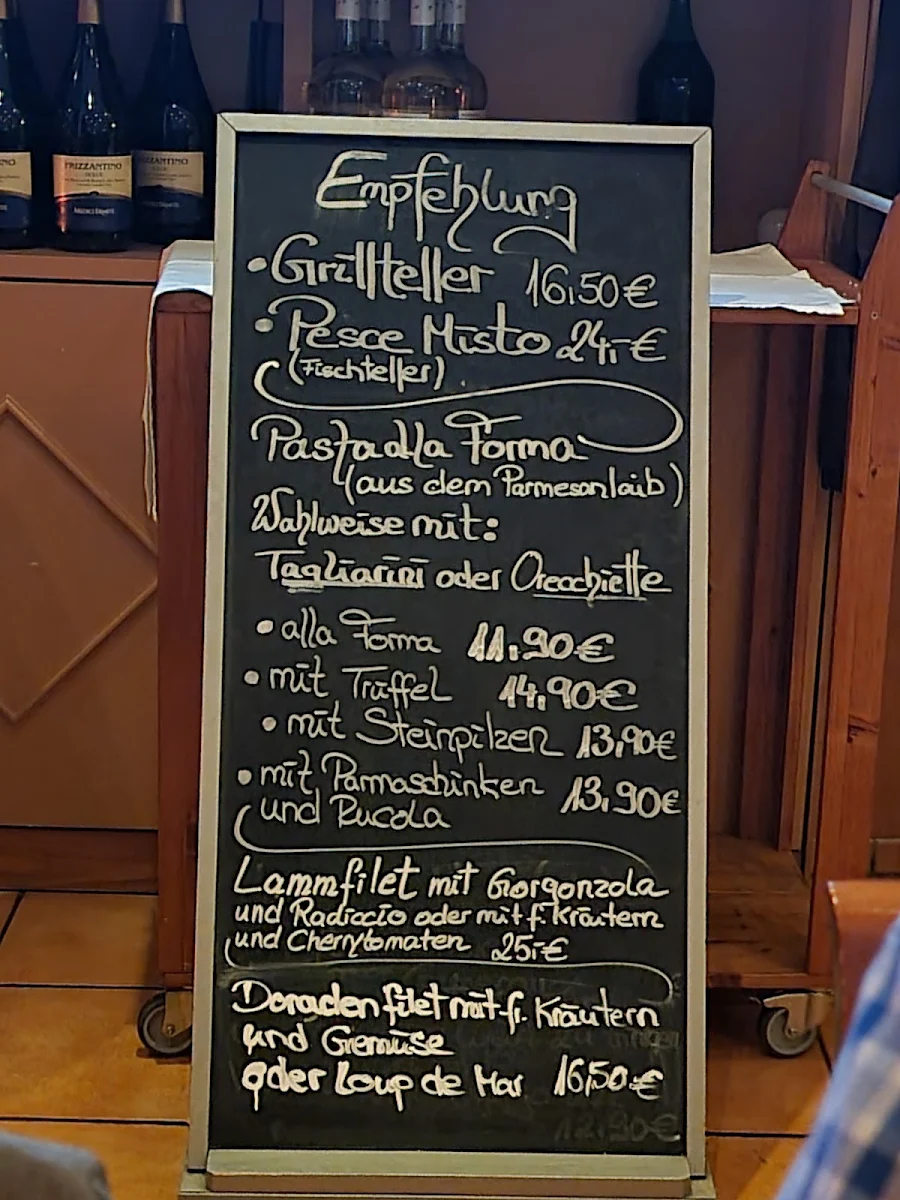 FRIZZANTINO
DOLCE
MEDICI ERMETE
Empfehlung
• Grillteller 16,50 €
• Pesce Misto 24,- €
(Fischteller)
Pasta alla Forma
(aus dem Parmesanlaib)
Wahlweise mit:
Tagliarini oder Orecchiette
• alla Forma 11.90 €
• mit Trüffel 14,90 €
• mit Steinpilzen 13,90 €
• mit Parmaschinken 13.90 €
und Rucola
Lammfilet mit Gorgonzola
und Radiccio oder mit f. Kräutern
und Cherrytomaten 25,- €
Doradenfilet mit fr. Kräutern
und Gemüse
oder Loup de Mar 16,50 €
12.90 €